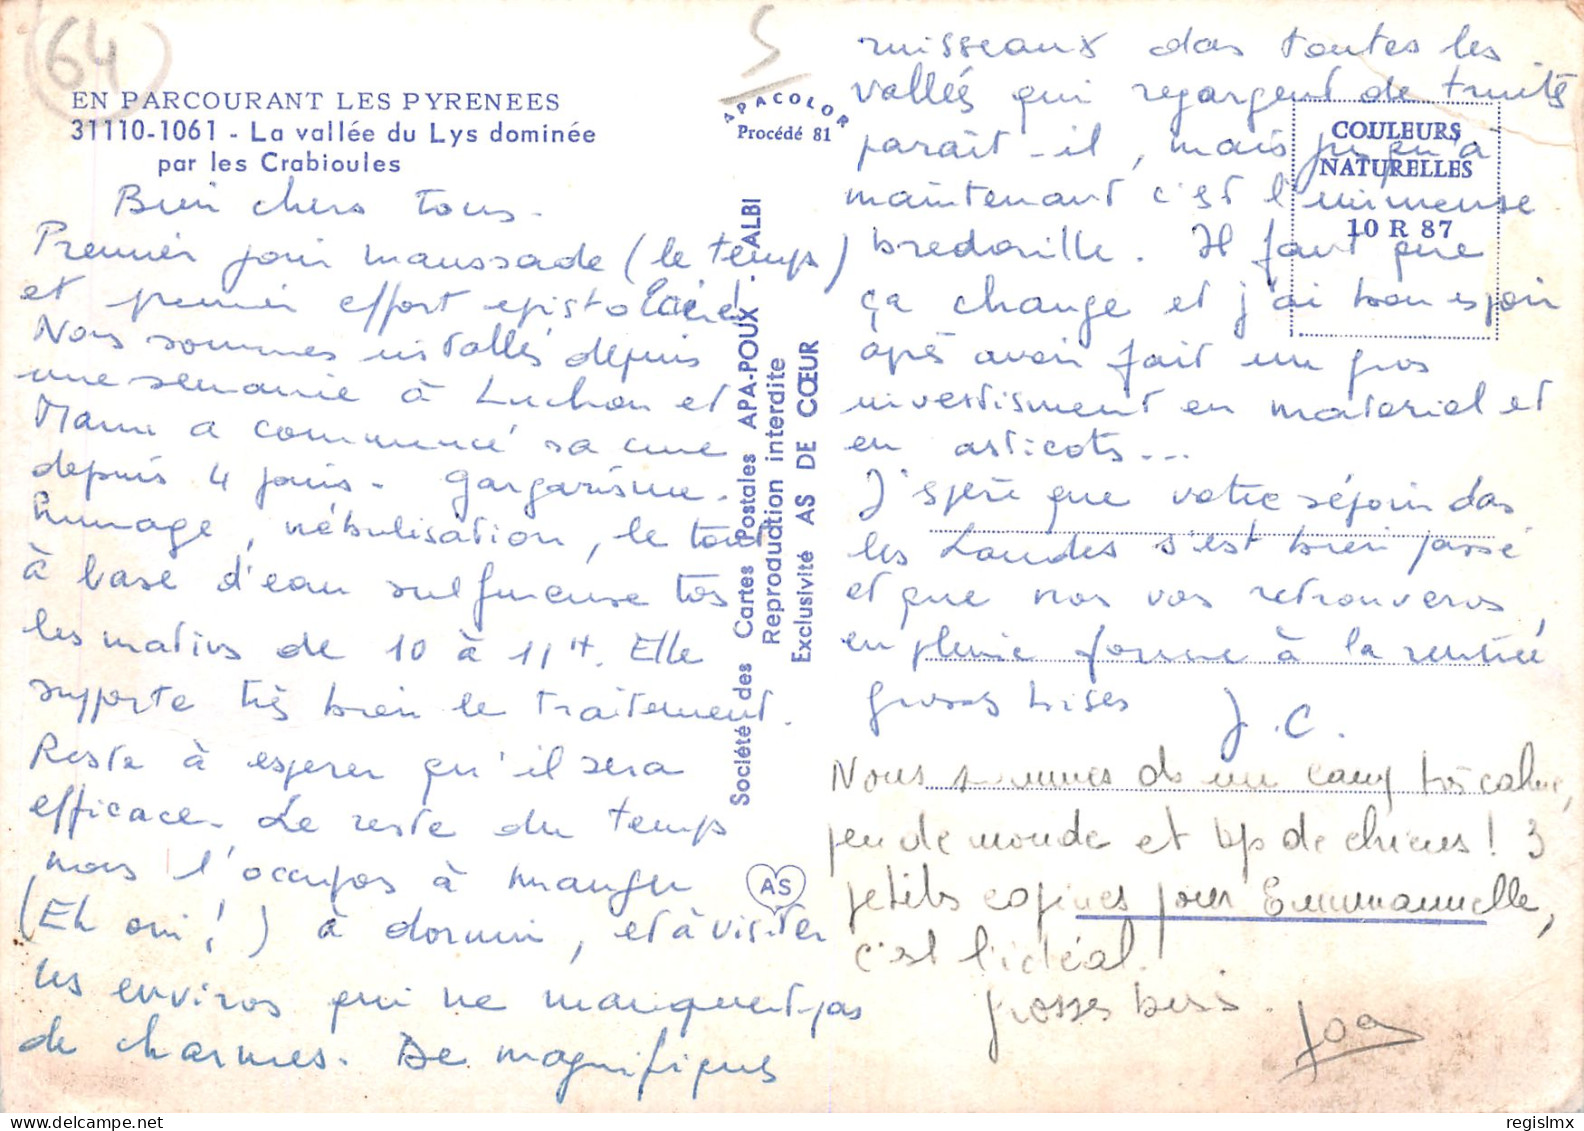 64
EN PARCOURANT LES PYRENEES
31110-1061 - La vallée du Lys dominée
par les Crabioules
Bien chers tous.
Premier jour maussade (le temps)
et premier effort epistolaire!
Nous sommes installés depuis
une semaine à Luchon et
a commencé sa cure
depuis 4 jours. Gargarisme.
humage, nébulisation, le tout
à base d'eau sulfureuse tos
les matins de 10 à 11H. Elle
supporte très bien le traitement.
Reste à esperer qu'il sera
efficace. Le reste du temps
nous l'occupos à manger
(Eh oui!) à dormir, et à visiter
les environs qui ne manquent pas
de charmes. De magnifiques
S
APACOLOR
Procédé 81
Société des Cartes Postales APA-POUX - ALBI
Reproduction interdite
Exclusivité AS DE CŒUR
AS
ruisseaux das toutes les
vallés qui regorgent de truites
parait-il, mais jusqu'à
maintenant c'est l'immense
bredouille. Il faut que
ça change et j'ai bon espoir
après avoir fait un gros
investisment en materiel et
en asticots...
J'espère que votre séjour das
les Landes s'est bien passé
et que nos vos retrouveros
en pleine forme à la rentrée
grosses bises
J.C.
COULEURS
NATURELLES
10 R 87
Nous sommes ds un camp très calme,
peu de monde et bp de chiens! 3
petites copines pour Emmanuelle,
c'est l'idéal.
grosses bises.
Joa
regislmx